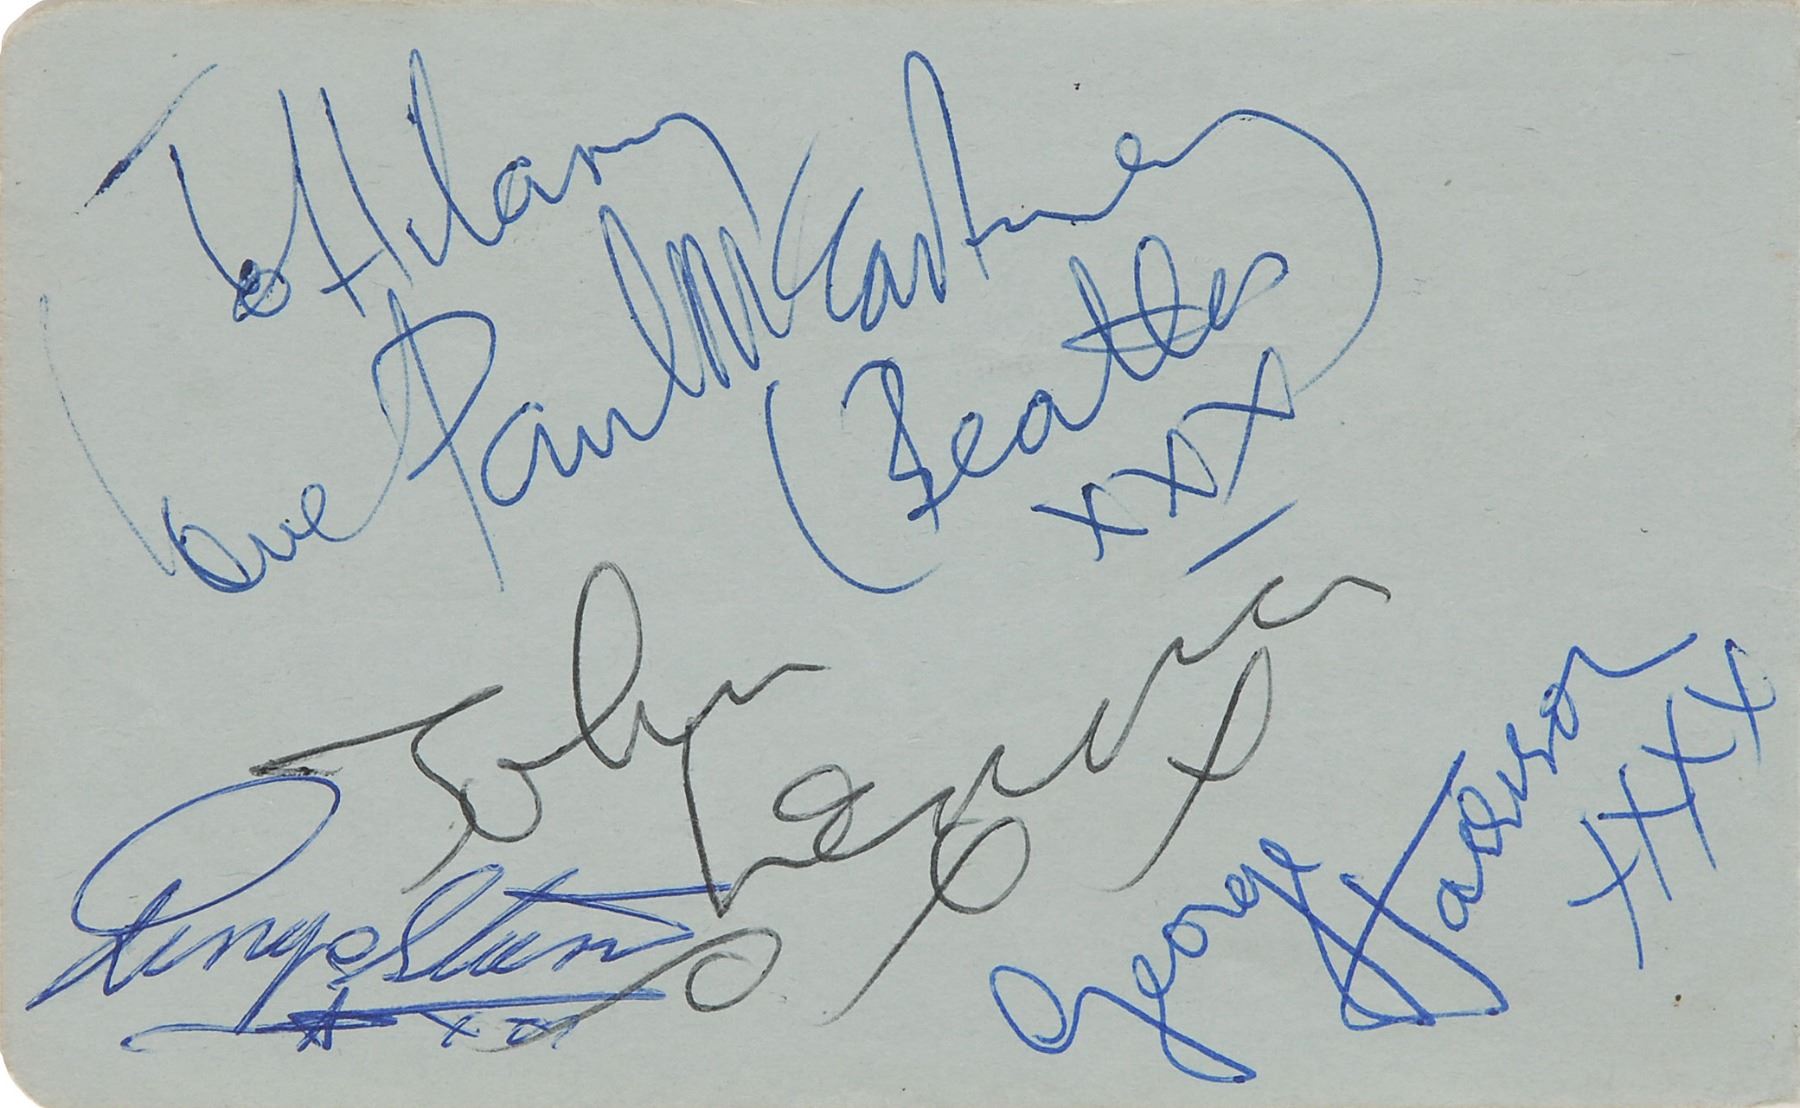 To Hilary
love Paul McCartney
(Beatles)
xxx
John Lennon
xxx
George Harrison
xxxx
Ringo Starr
xxx